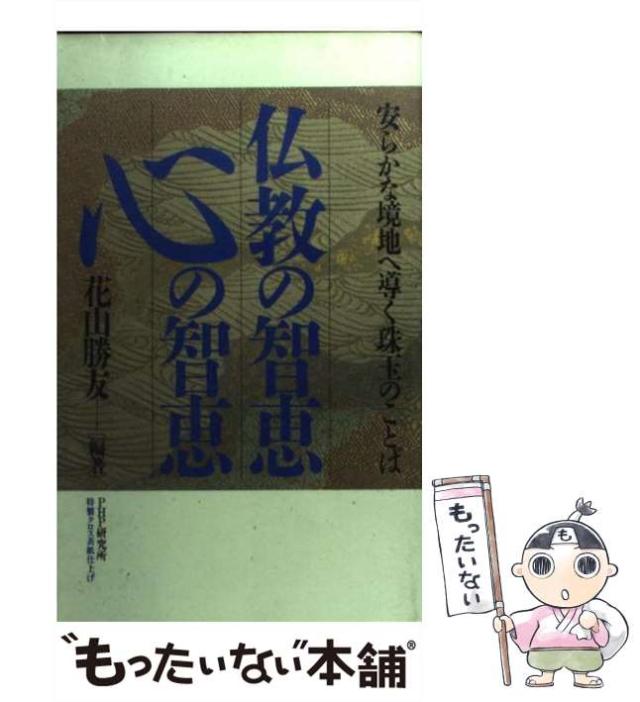 安らかな境地へ導く珠玉のことば
仏教の智恵
心の智恵
花山勝友──編著
PHP研究所
特製クロス表紙仕上げ
“もったいない”本舗®
もったいない
も